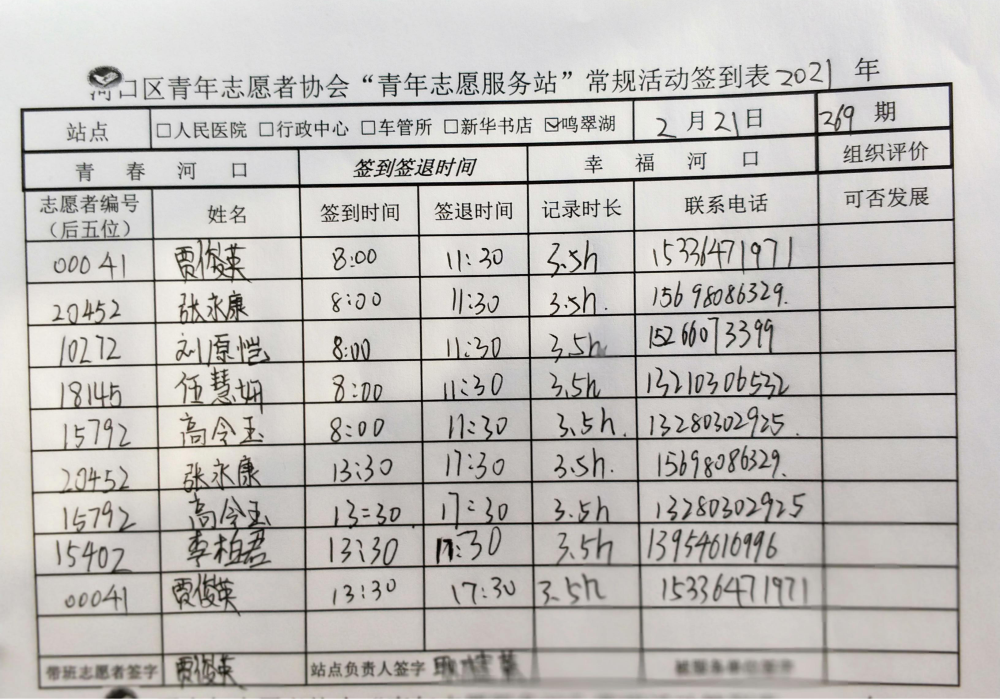 河口区青年志愿者协会“青年志愿服务站”常规活动签到表2021 年
站点 □人民医院 □行政中心 □车管所 □新华书店 ☑鸣翠湖 2月21日 269 期
青春河口 签到签退时间 幸福河口 组织评价
志愿者编号（后五位） 姓名 签到时间 签退时间 记录时长 联系电话 可否发展
00041 贾俊英 8:00 11:30 3.5h 15336471971
20452 张永康 8:00 11:30 3.5h. 15698086329.
10272 刘原恺 8:00 11:30 3.5h 15266073399
18145 任慧妍 8:00 11:30 3.5h 13210306532
15792 高令玉 8:00 11:30 3.5h. 13280302925.
20452 张永康 13:30 17:30 3.5h. 15698086329.
15792 高令玉 13:30 17:30 3.5h 13280302925
15402 李柏君 13:30 17:30 3.5h 13954610996
00041 贾俊英 13:30 17:30 3.5h 15336471971
带班志愿者签字 贾俊英 站点负责人签字